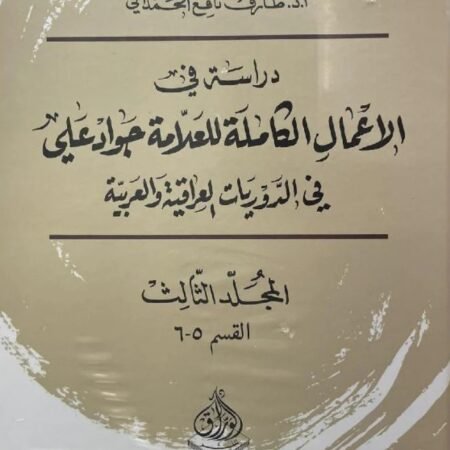 أ.د. طارق نافع الحمداني
دراسة في
الأعمال الكاملة للعلامة جواد علي
في الدوريات العراقية والعربية
المجلد الثالث
القسم ٥-٦
الوراق